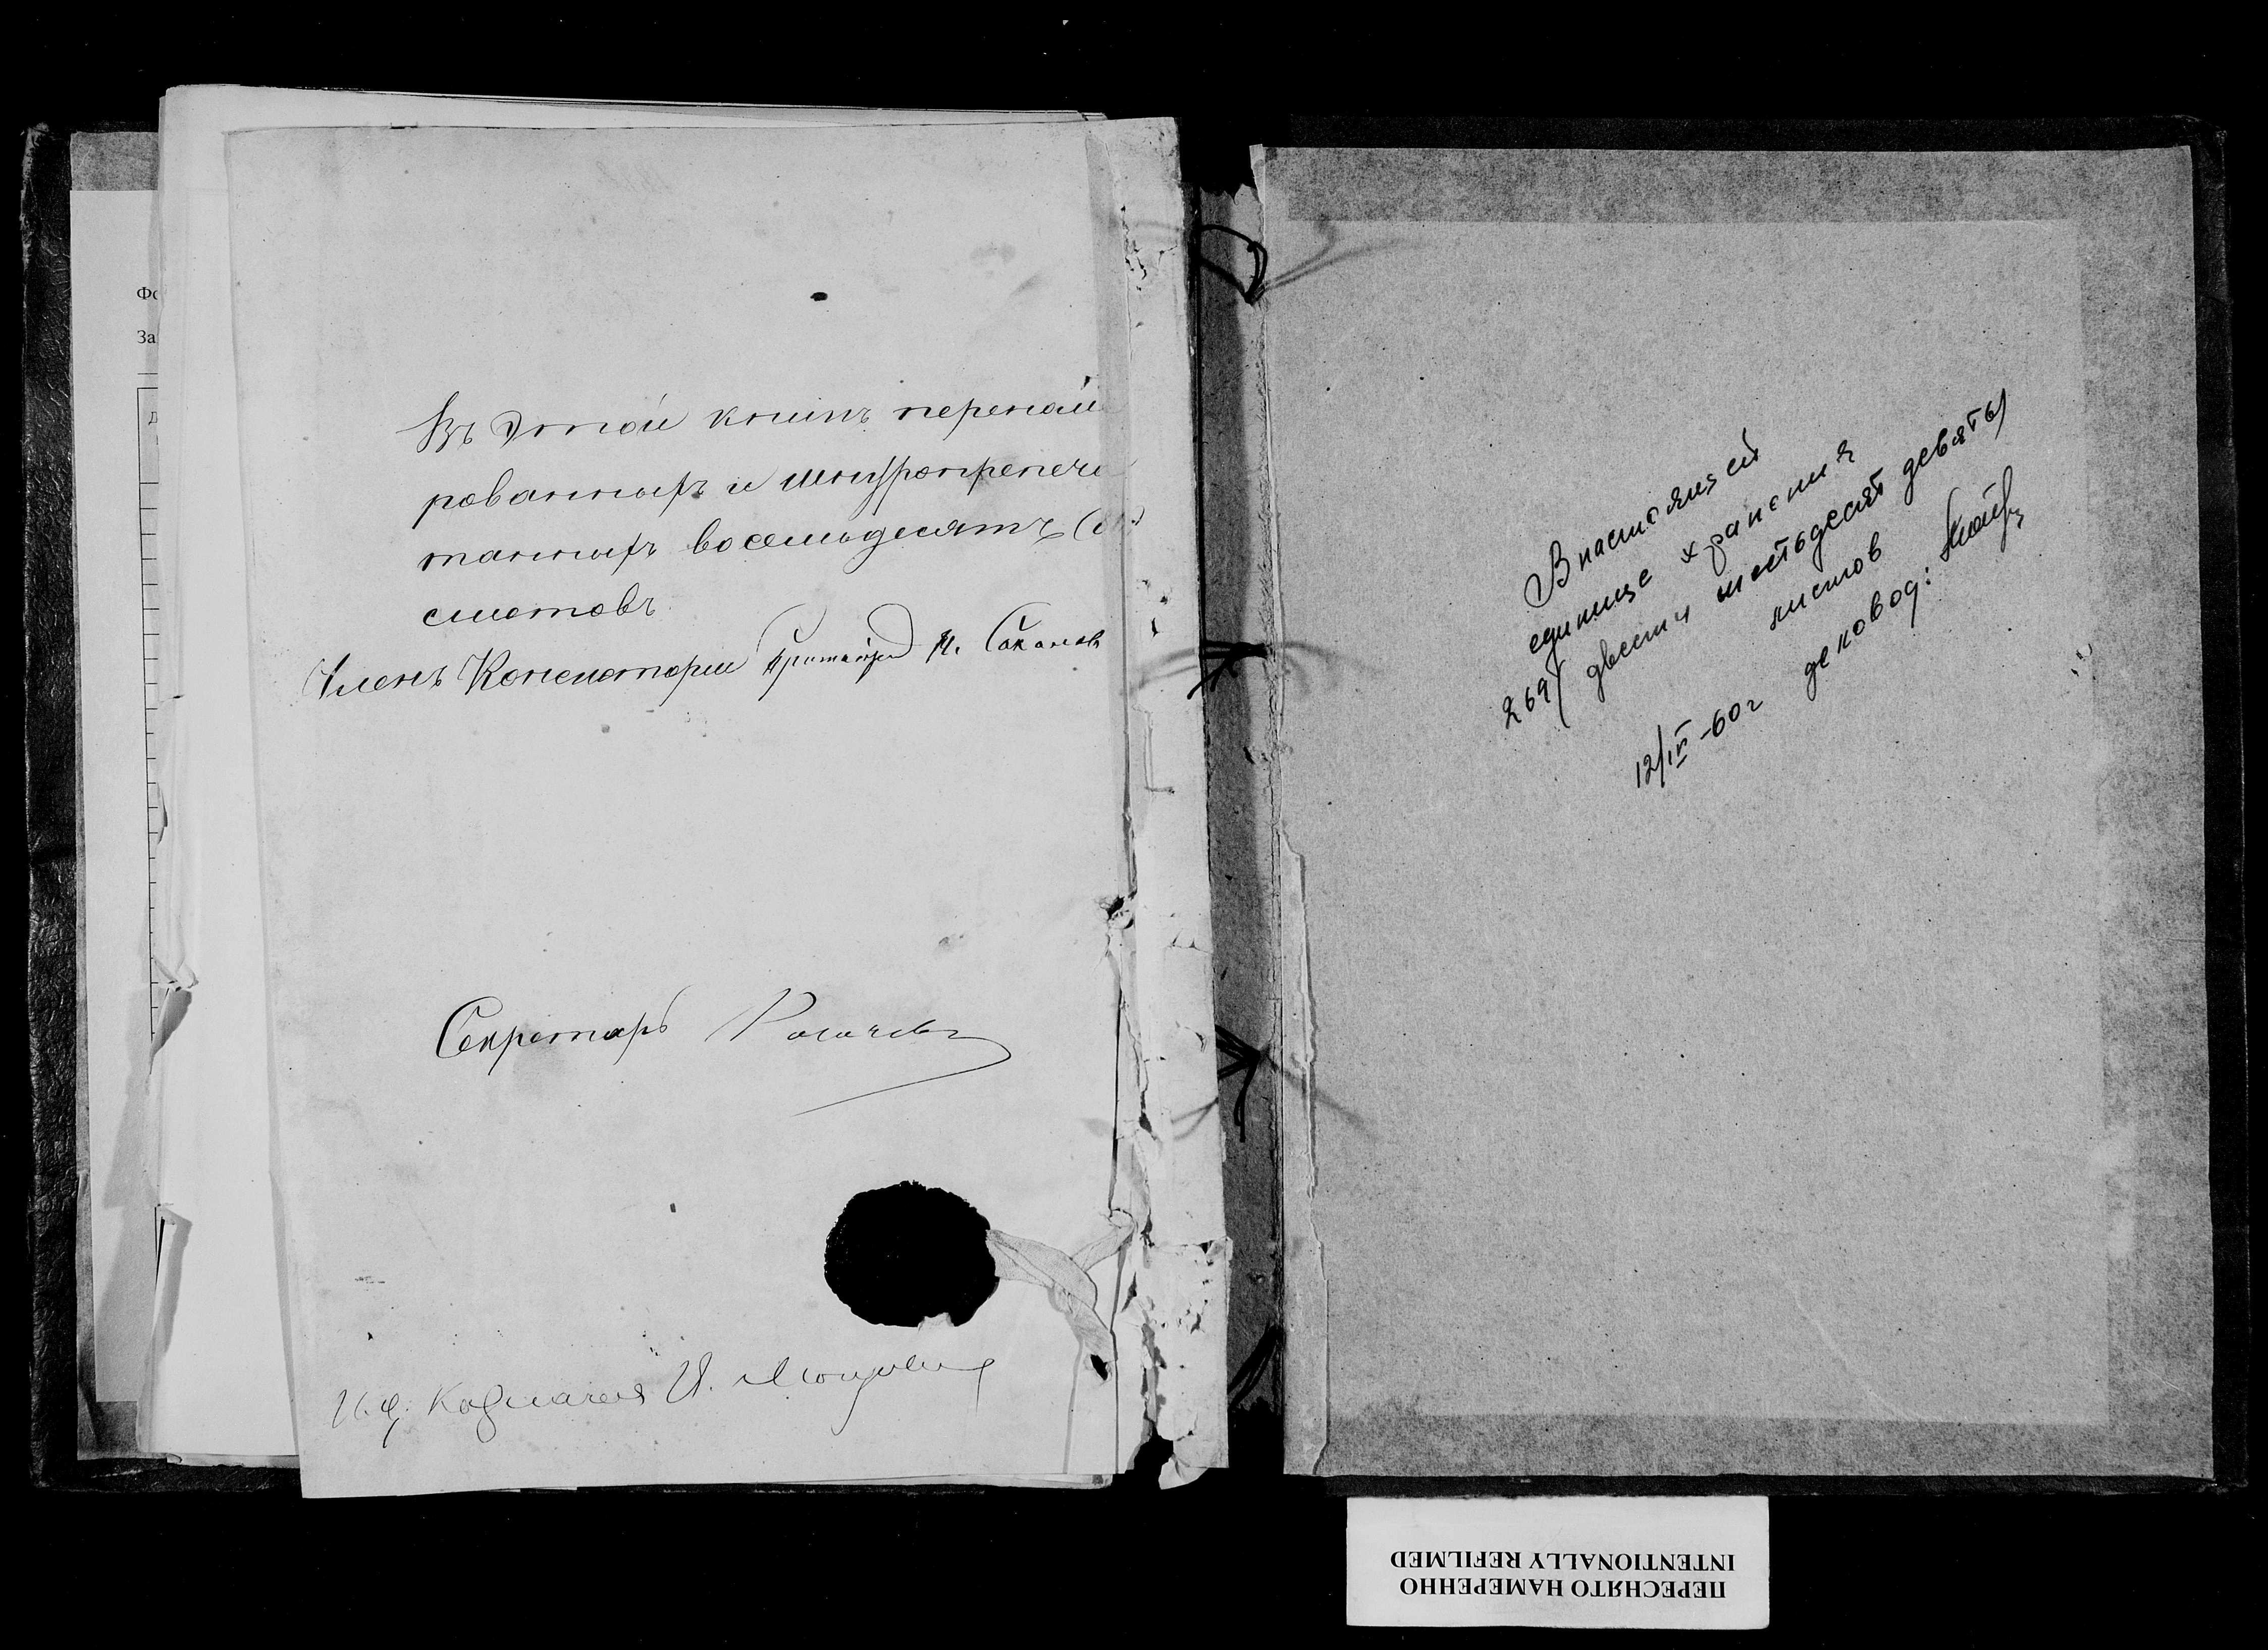 Въ этой книгѣ перенаме
рованныхъ и шнуропрепеча
танныхъ восемьдесятъ (8
листовъ.
Членъ Консисторіи Протоіерей
Секретарь
И. д. Казначея И.
Фо
За
В настоящей
единице хранения
269/ двести шестьдесят девять/
листов
12/IV-60г
ПЕРЕСНЯТО НАМЕРЕННО
INTENTIONALLY REFILMED